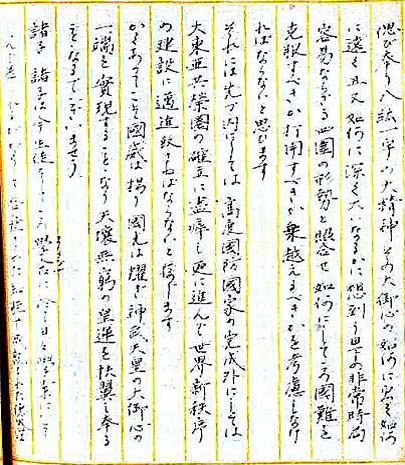 偲び奉り八紘一宇の大精神 その大御心の如何に宏く如何
に遠く且又如何に深く大いなるかに想到り目下の非常時局
容易ならざる四圍の形勢と照合せ如何にしてこの國難を
克服すべきか打開すべきか乗越えるべきかを考慮しなけ
ればならないと思ひます
それには先づ内にしては 高度國防國家の完成外にしては
大東亜共榮圏の確立に盡瘁し更に進んで世界新秩序
の建設に邁進致さねばならないと信じます
かくあってこそ國威は揚り國光は耀き神武天皇の大御心の
一端を實現することゝなり天壤無窮の皇運を扶翼し奉る
ことゝなるでございませう
諸子 諸子は今